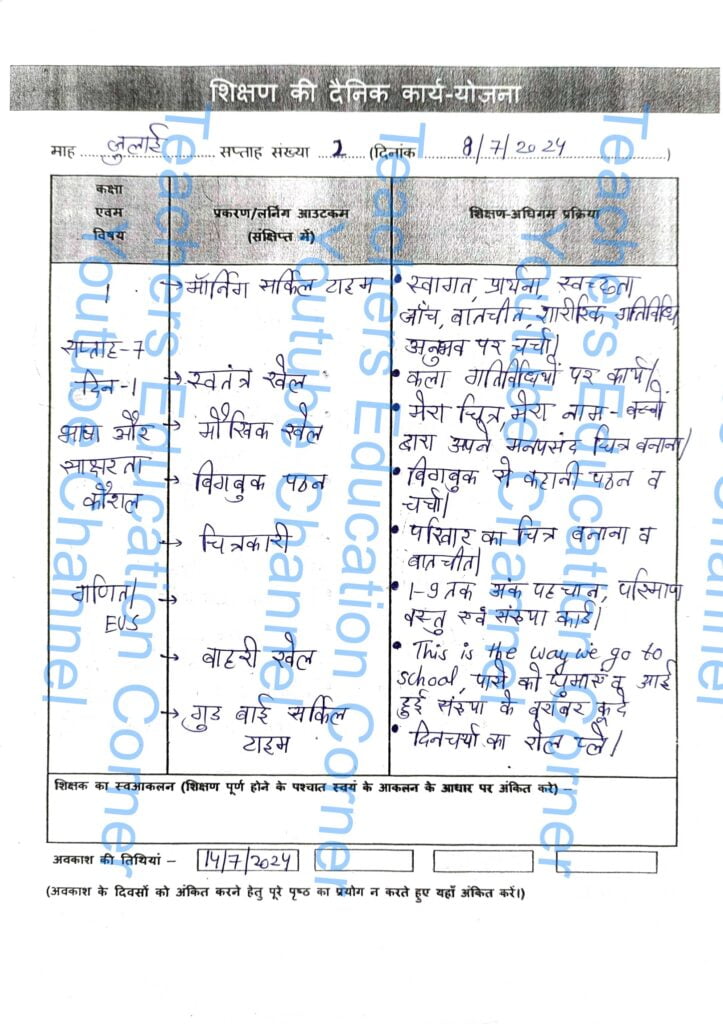 शिक्षण की दैनिक कार्य-योजना
माह जुलाई सप्ताह संख्या 2 (दिनांक 8/7/2024)
कक्षा
एवम
विषय
प्रकरण/लर्निंग आउटकम
(संक्षिप्त में)
शिक्षण-अधिगम प्रक्रिया
1
सप्ताह-7
दिन-1
भाषा और
साक्षरता
कौशल
गणित/
EVS
→ मॉर्निंग सर्किल टाइम
→ स्वतंत्र खेल
→ मौखिक खेल
→ बिगबुक पठन
→ चित्रकारी
→
→ बाहरी खेल
→ गुड बाई सर्किल
टाइम
• स्वागत, प्रार्थना, स्वच्छता
जाँच, बातचीत, शारीरिक गतिविधि,
अनुभव पर चर्चा।
• कला गतिविधियों पर कार्य।
• मेरा चित्र, मेरा नाम - बच्चों
द्वारा अपने मनपसंद चित्र बनाना।
• बिगबुक से कहानी पठन व
चर्चा।
• परिवार का चित्र बनाना व
बातचीत।
• 1-9 तक अंक पहचान, परिमाण
वस्तु एवं संख्या कार्ड।
• This is the way we go to
school, पासे को घुमाएं व आई
हुई संख्या के बराबर कूदे
• दिनचर्या का रोल प्ले।
शिक्षक का स्वआकलन (शिक्षण पूर्ण होने के पश्चात स्वयं के आकलन के आधार पर अंकित करे) –
अवकाश की तिथियां – 14/7/2024
(अवकाश के दिवसों को अंकित करने हेतु पूरे पृष्ठ का प्रयोग न करते हुए यहाँ अंकित करें।)
Teachers Education Corner
Youtube Channel
Teachers Education Corner
Youtube Channel
Teachers Education Corner
Youtube Channel